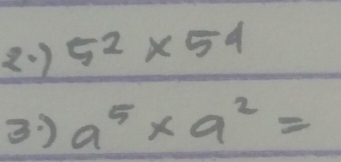 2.) 5² × 5⁴
3.) a⁵ × a² =